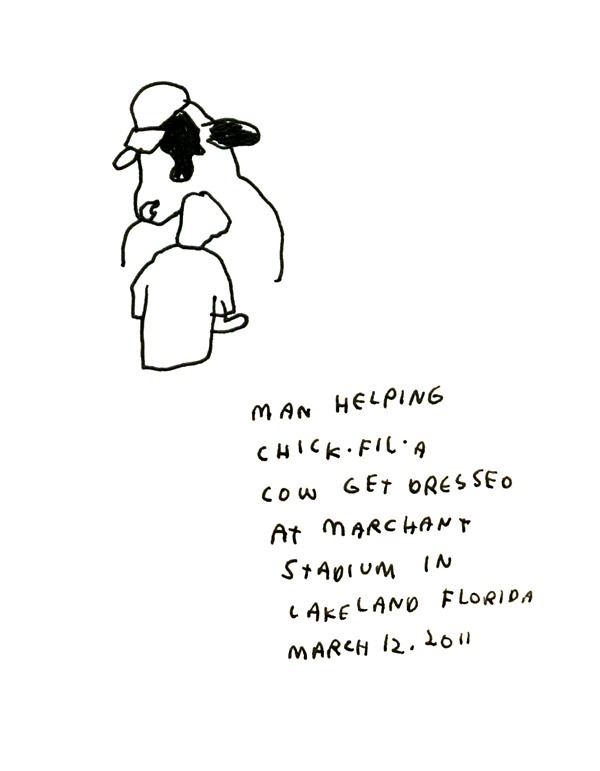 MAN HELPING
CHICK·FIL·A
COW GET DRESSED
AT MARCHANT
STADIUM IN
LAKELAND FLORIDA
MARCH 12. 2011